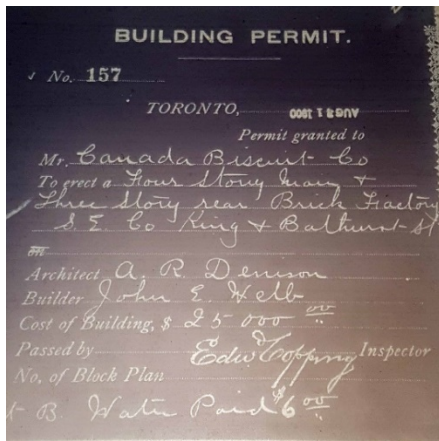 BUILDING PERMIT.
No. 157
TORONTO, AUG 1 1900
Permit granted to
Mr. Canada Biscuit Co
To erect a Four Story Main &
Three Story rear Brick Factory
S. E. Co King & Bathurst St
on
Architect A. R. Denison
Builder John E. Webb
Cost of Building, $ 25 000 00
Passed by Edw Topping Inspector
No. of Block Plan
B. Water Paid $6 00